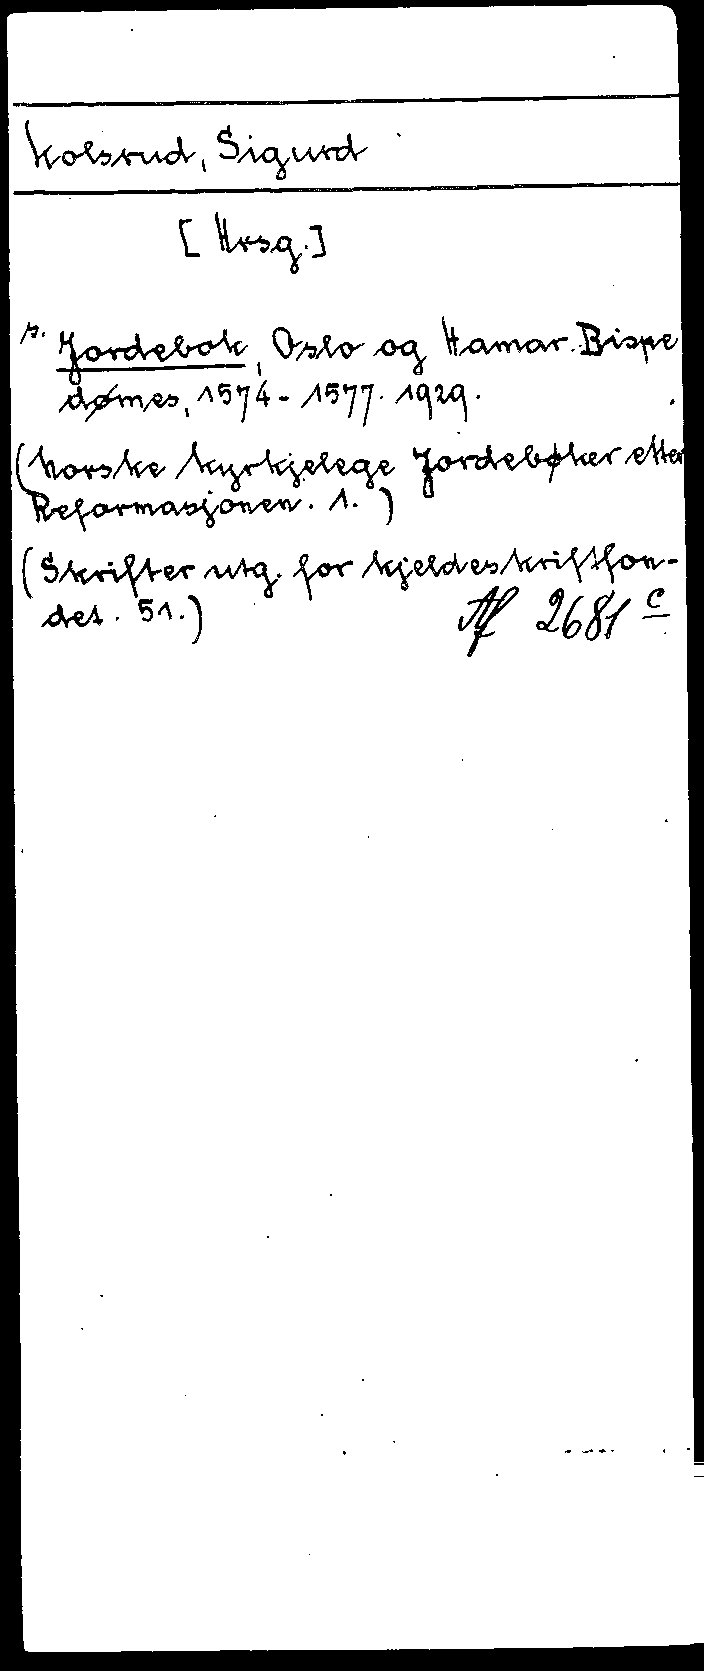 Kolsrud, Sigurd
[Hrsg.]
s. Jordebok, Oslo og Hamar Bispe
dømes, 1574-1577. 1929.
(Norske kyrkjelege Jordebøker etter
Reformasjonen. 1.)
(Skrifter utg. for kjeldeskriftfon-
det. 51.) Af 2681 c